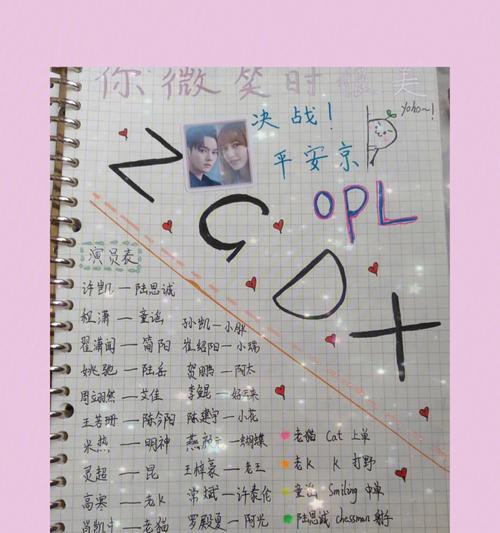 你微笑时很美
决战！
平安京
Yoho~!
OPL
ZGD+
演员表
许凯 — 陆思诚
程潇 — 童谣
翟潇闻 — 简阳
姚弛 — 陆岳
周翊然 — 艾佳
王若珊 — 陈今阳
米热 — 明神
灵超 — 昆
高寒 — 老K
吕凯中 — 老猫
孙凯 — 小胖
崔绍阳 — 小瑞
贺鹏 — 阿太
李鲲 — 好三来
陈建宇 — 小花
燕 — 蝴蝶
王梓豪 — 老王
常斌 — 许泰伦
罗殿夏 — 阿光
老猫 Cat 上单
老K K 打野
童谣 Smiling 中单
陆思诚 chessman 射手